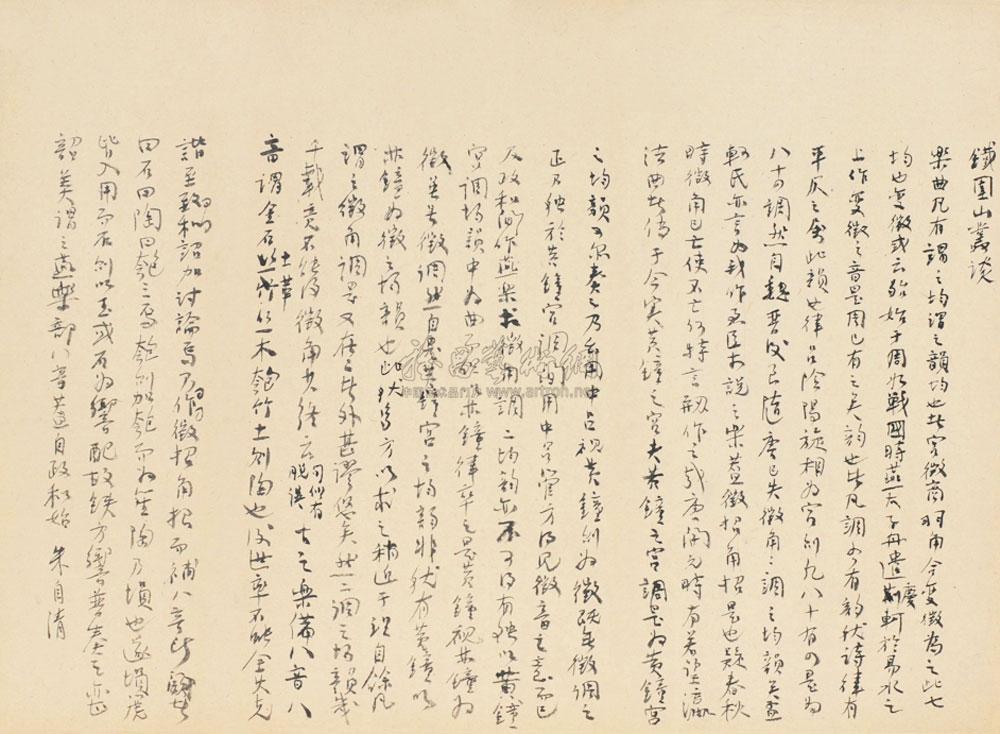 鐵圍山叢談
樂曲凡有謂之均謂之韻均也者宮徵商羽角合變徵為之此七
均也變徵或云殆始于周如戰國時燕太子丹遣慶軻於易水之
上作變徵之音是周已有之矣韻也者凡調各有韻猶詩律有
平仄之屬此韻也律呂陰陽旋相為宮則凡八十有四是為
八十四調然自魏晉後至隋唐已失徵角二調之均韻矣孟
軻氏亦言為我作君臣相說之樂蓋徵招角招是也疑春秋
時徵角已亡使不亡何特言刱作之哉唐開元時有若望瀛
法曲者傳于今實黃鐘之宮夫黃鐘之宮調是為黃鐘宮
之均韻可爾奏之乃么用中呂視黃鐘則為徵既無徵調之
正乃獨於黃鐘宮調間用中呂管方得見徵音之意而已
及政和間作燕樂求徵角調二均韻亦不可得有獨以黃鐘
宮調均韻中為曲而但以林鐘律卒之是黃鐘視林鐘為
徵雖號徵調然自是黃鐘宮之均韻非猶有黃鐘以
林鐘為徵之均韻也此猶多方以求之稍近于理自餘凡
謂之徵角調是又在二者外甚謬悠矣然二調之均韻幾
千載竟不能得徵角其終云句似有脫誤 古之樂備八音八
音謂金石土革絲木匏竹土則陶也後世率不能全失克
諧至政和詔加討論焉乃作徵招角招而補八音所闕者
曰石曰陶曰匏三焉匏則加匏而為笙陶乃塤也遂塤箎
皆入用而石則以玉或石為響配故鐵方響普奏之亦甚
韶美謂之燕樂部八音蓋自政和始 朱自清